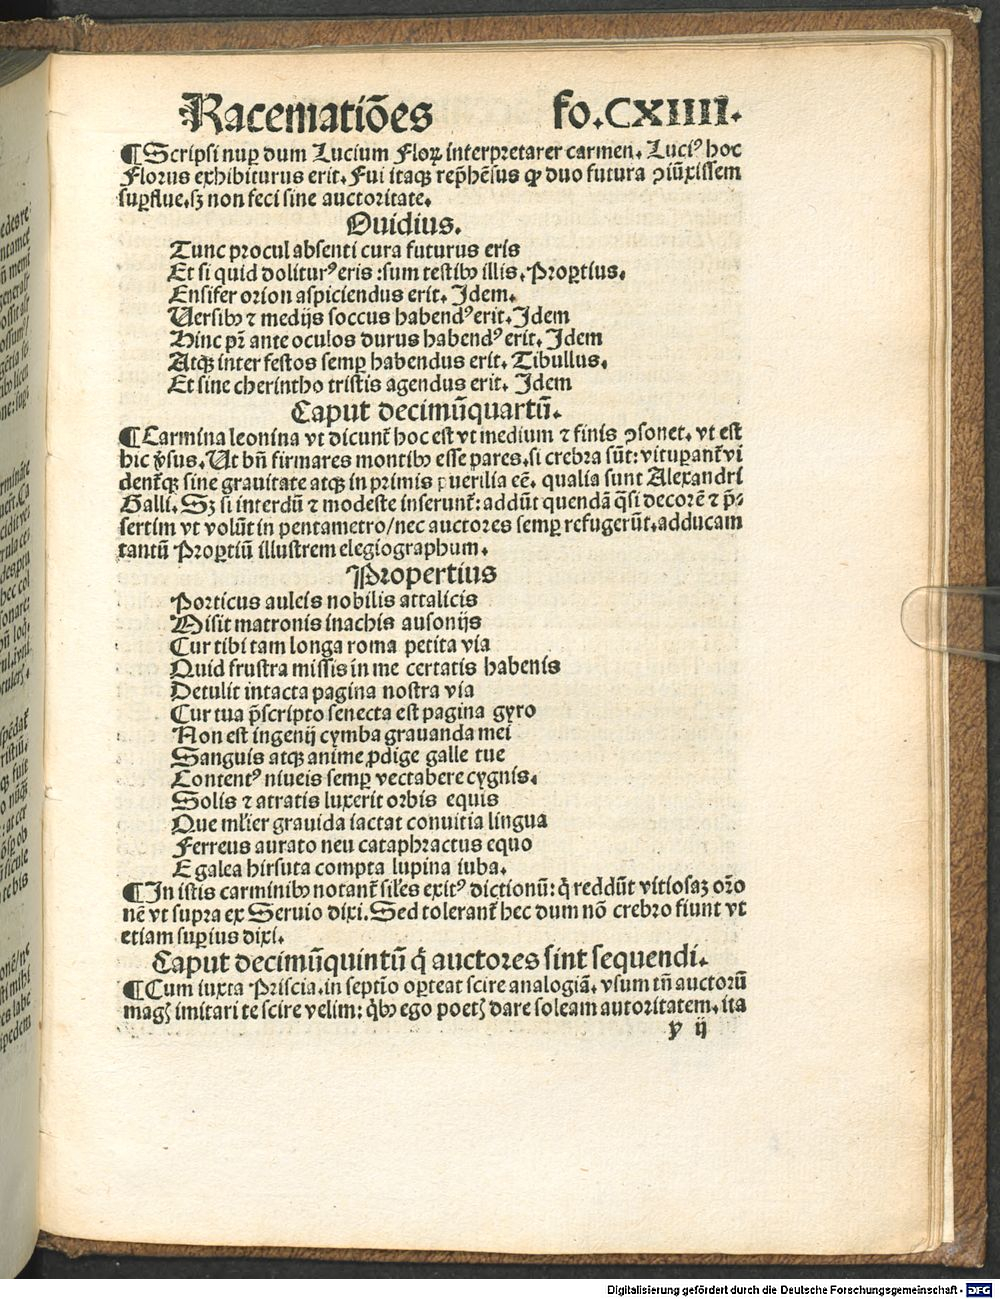 Racematiões fo.CXIIII.
¶Scripsi nuꝑ dum Lucium Floꝝ interpretarer carmen. Luciꝰ hoc
Florus exhibiturus erit. Fui itaqꝫ rep̄hēsus ꝙ duo futura ꝯiūxissem
suꝑflue.sꝫ non feci sine auctoritate.
Ouidius.
Tunc procul absenti cura futurus eris
Et si quid doliturꝰ eris :sum testibꝰ illis. Proꝑtius.
Ensifer orion aspiciendus erit. Idem.
Versibꝰ ⁊ medijs soccus habendꝰ erit. Idem
Hinc pr̄ ante oculos durus habendꝰ erit. Idem
Atqꝫ inter festos semꝑ habendus erit. Tibullus.
Et sine cherintho tristis agendus erit. Idem
Caput decimūquartū.
¶Carmina leonina vt dicunt̄ hoc est vt medium ⁊ finis ꝯsonet. vt est
hic v̓sus. Ut bn̄ firmares montibꝰ esse pares. si crebra sūt: vituꝑant̄ vi
dent̄qꝫ sine grauitate atqꝫ in primis puerilia eē. qualia sunt Alexandri
Galli. Sꝫ si interdū ⁊ modeste inserunt̄: addūt quendā q̄si decorē ⁊ p̄-
sertim vt volūt in pentametro/nec auctores semꝑ refugerūt. adducam
tantū Proꝑtiū illustrem elegiographum.
Propertius
Porticus auleis nobilis attalicis
Misit matronis inachis ausonijs
Cur tibi tam longa roma petita via
Quid frustra missis in me certatis habenis
Detulit intacta pagina nostra via
Cur tua p̄scripto senecta est pagina gyro
Non est ingenij cymba grauanda mei
Sanguis atqꝫ anime ꝓdige galle tue
Contentꝰ niueis semꝑ vectabere cygnis.
Solis ⁊ atratis luxerit orbis equis
Que ml̓ier grauida iactat conuitia lingua
Ferreus aurato neu cataphractus equo
E galea hirsuta compta lupina iuba.
¶In istis carminibꝰ notant̄ sil̓es exitꝰ dictionū: q̄ reddūt vitiosaꝫ orō
nē vt supra ex Seruio dixi. Sed tolerant̄ hec dum nō crebro fiunt vt
etiam suꝑius dixi.
Caput decimūquintū q̄ auctores sint sequendi.
¶Cum iuxta Priscia. in septio oꝑteat scire analogiā. vsum tn̄ auctorū
magꝭ imitari te scire velim: q̓bꝰ ego poetꝭ dare soleam autoritatem. ita
y ij
Digitalisierung gefördert durch die Deutsche Forschungsgemeinschaft - DFG